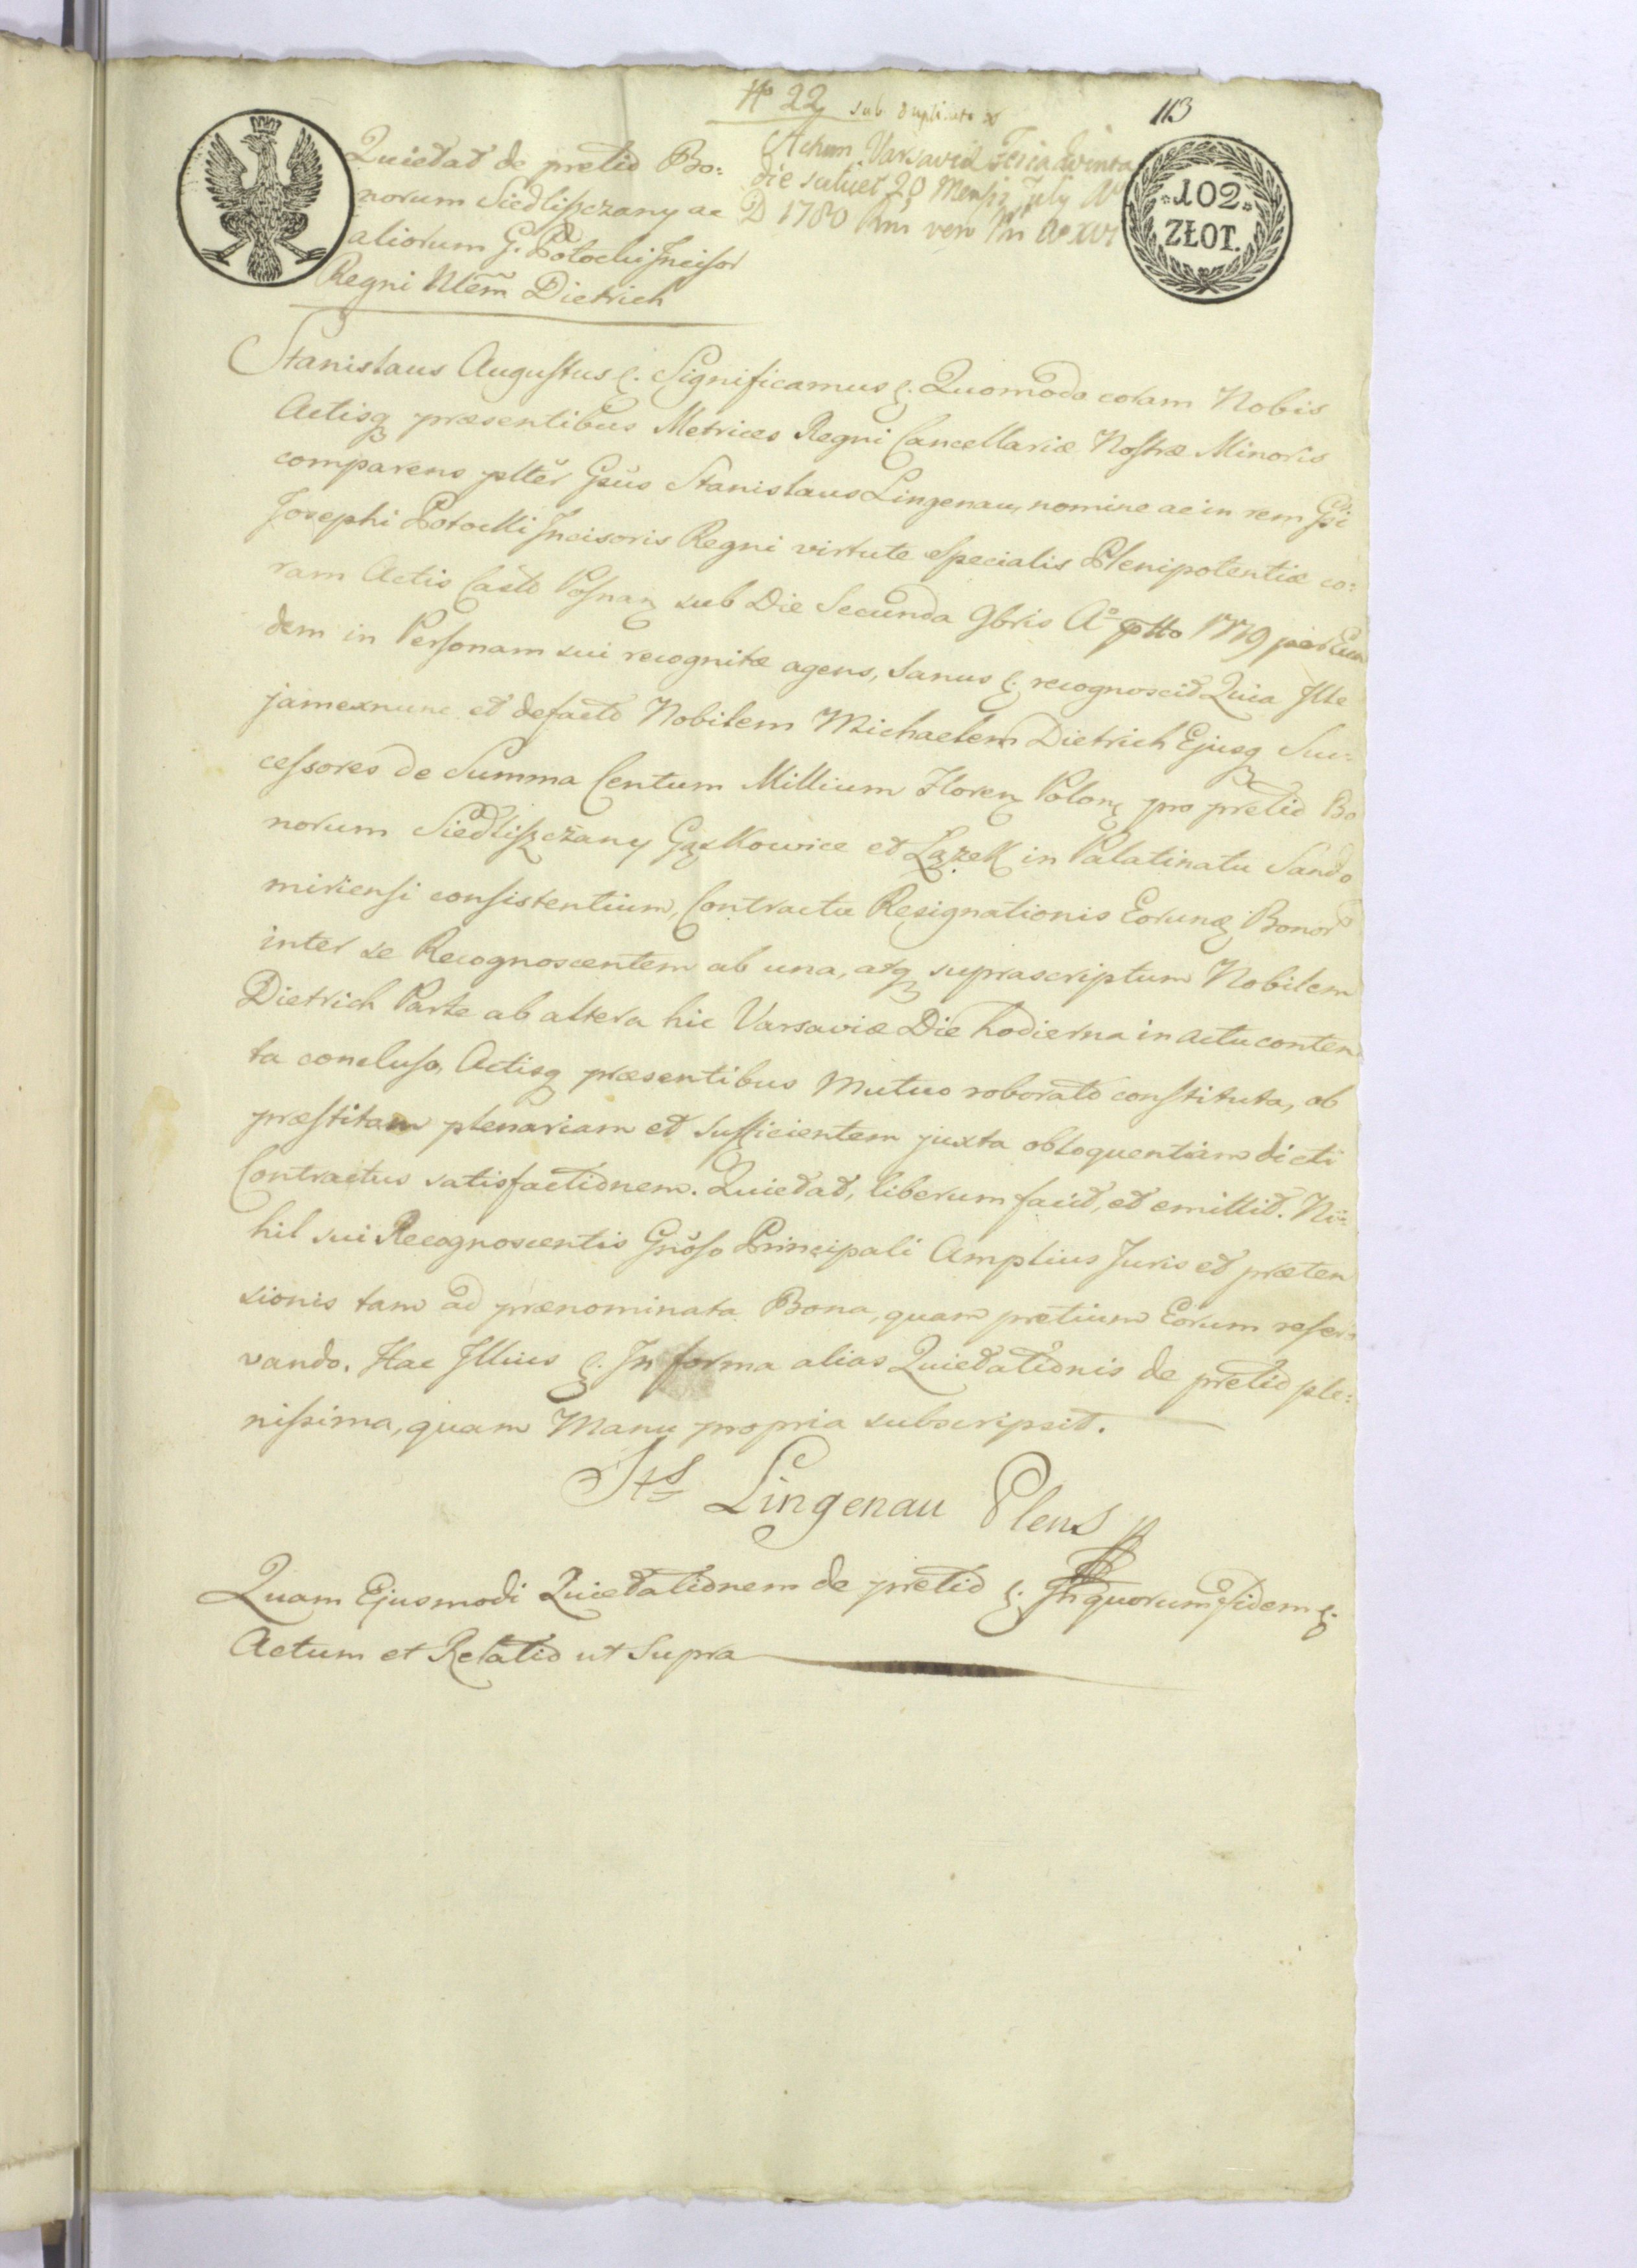 No 22 sub duplicato
113
Quietat de pretio Bo:
norum Siedliszczany ac
aliorum G. Potocki Incisor
Regni Nlem Dietrich
Actum Varsaviæ Feria Quinta
die scilicet 20 Mensis July Ao
D 1780 Rni vero Nri Ao XVI
102
ZŁOT.
Stanislaus Augustus &. Significamus &. Quomodo coram Nobis
Actisq præsentibus Metrices Regni Cancellariæ Nostræ Minoris
comparens plter Gsus Stanislaus Lingenau, nomine ac in rem Gsi
Josephi Potocki Incisoris Regni virtute specialis Plenipotentiæ co:
ram Actis Castr Posnan sub Die Secunda 9bris Ao pttо 1779 per Eun
dem in Personam sui recognitæ agens, Sanus &. recognoscit Quia Ille
jam ex nunc et de facto Nobilem Michaelem Dietrich Ejusq Suc:
cessores de Summa Centum Millium Floren Polon pro pretio Bo
norum Siedliszczany Gązkowice et Lązek in Palatinatu Sando
miriensi consistentium, Contractu Resignationis Eorund Bonor
inter se Recognoscentem ab una, atq suprascriptum Nobilem
Dietrich Parte ab altera hic Varsaviæ Die hodierna in actu conten
ta concluso, Actisq præsentibus Mutuo roborato constituta, ob
præstitam plenariam et sufficientem juxta obloquentiam dicti
Contractus satisfactionem. Quietat, liberum facit, et emittit. Ni:
hil sui Recognoscentis Gnoso Principali Amplius Juris et præten
sionis tam ad prænominata Bona, quam pretium Eorum reser:
vando. Hac Illius &. In forma alias Quietationis de pretio ple:
nissima, quam Manu propria subscripsit.
Sts Lingenau Plens
Quam Ejusmodi Quietationem de pretio &. In quorum Fidem &.
Actum et Relatio ut Supra